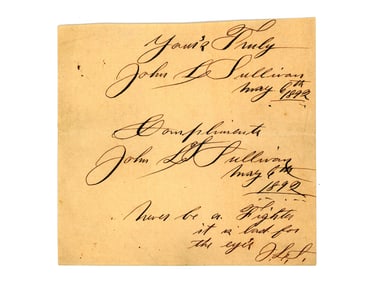 Your's Truly
John L Sullivan
May 6th
1892
Compliments
John L Sullivan
May 6th
1892
Never be a Fighter
it is bad for
the eye's
J.L.S.